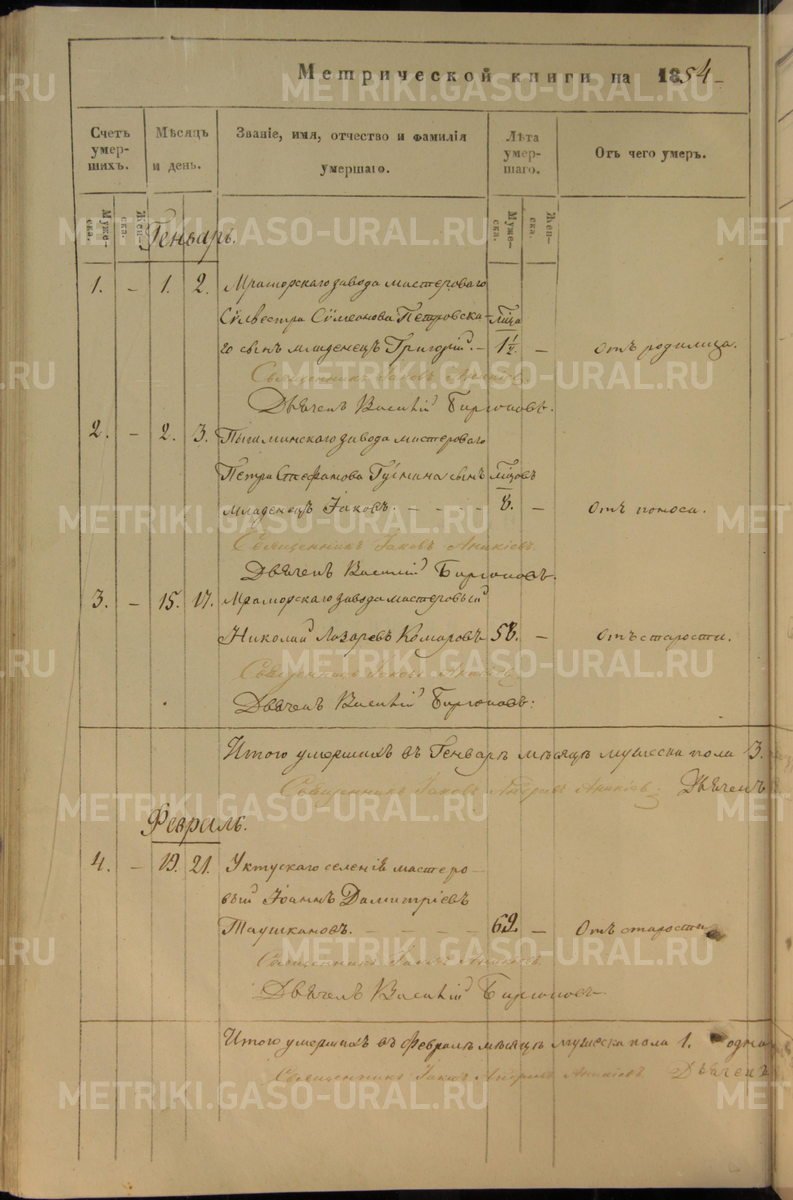 Метрической книги на 1854
Счетъ умер-шихъ.
Мѣсяцъ и день.
Званіе, имя, отчество и фамилія умершаго.
Лѣта умер-шаго.
Отъ чего умеръ.
Муже-ска.
Жен-ска.
Муже-ска.
Жен-ска.
Генварь.
1. – 1. 2. Мраморскаго завода мастероваго
Сѵлвестра Сѵмеонова Петровска-
го сынъ младенецъ Григорій. – 1½. – Отъ родимца.
Священникъ Іаковъ Аникіевъ.
Дьячекъ Василій
2. – 2. 3. Пышминскаго завода мастероваго
Петра Стефанова сынъ
младенецъ Іаковъ. – – – – 8. – Отъ поноса.
Священникъ Іаковъ Аникіевъ.
Дьячекъ Василій
3. – 15. 17. Мраморскаго завода мастеровый
Николай Лазаревъ Комаровъ 58. – Отъ старости.
Священникъ Іаковъ Аникіевъ
Дьячекъ Василій
Итого умершихъ въ Генварѣ мѣсяцѣ мужеска пола 3.
Священникъ Іаковъ Андреевъ Аникіевъ. Дьячекъ
Февраль.
4. – 19. 21. Уктускаго селенія мастеро-
вый Іоаннъ Димитріевъ
Таушкановъ. – – – – 69. – Отъ старости
Священникъ Іаковъ Аникіевъ.
Дьячекъ Василій
Итого умершихъ въ Февралѣ мѣсяцѣ мужеска пола 1.
Священникъ Іаковъ Андреевъ Аникіевъ Дьячекъ
METRIKI.GASO-URAL.RU